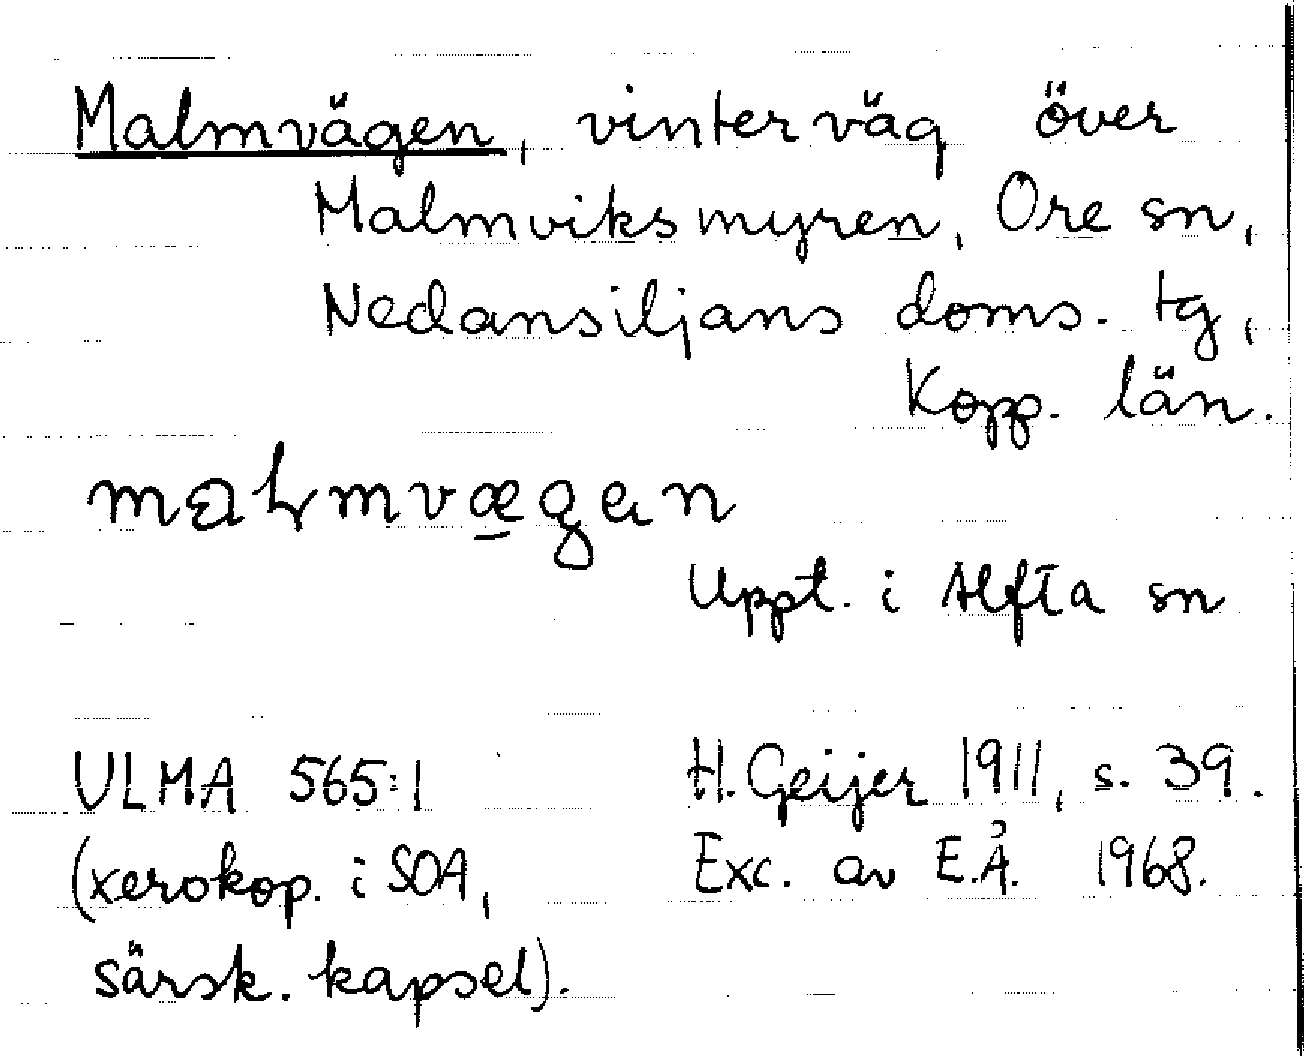 Malmvägen, vinterväg över
Malmviksmyren, Ore sn,
Nedansiljans doms. tg,
Kopp. län.
Uppt. i Alfta sn
ULMA 565:1 H. Geijer 1911, s. 39.
(xerokop. i SOA, Exc. av E.Å. 1968.
särsk. kapsel).